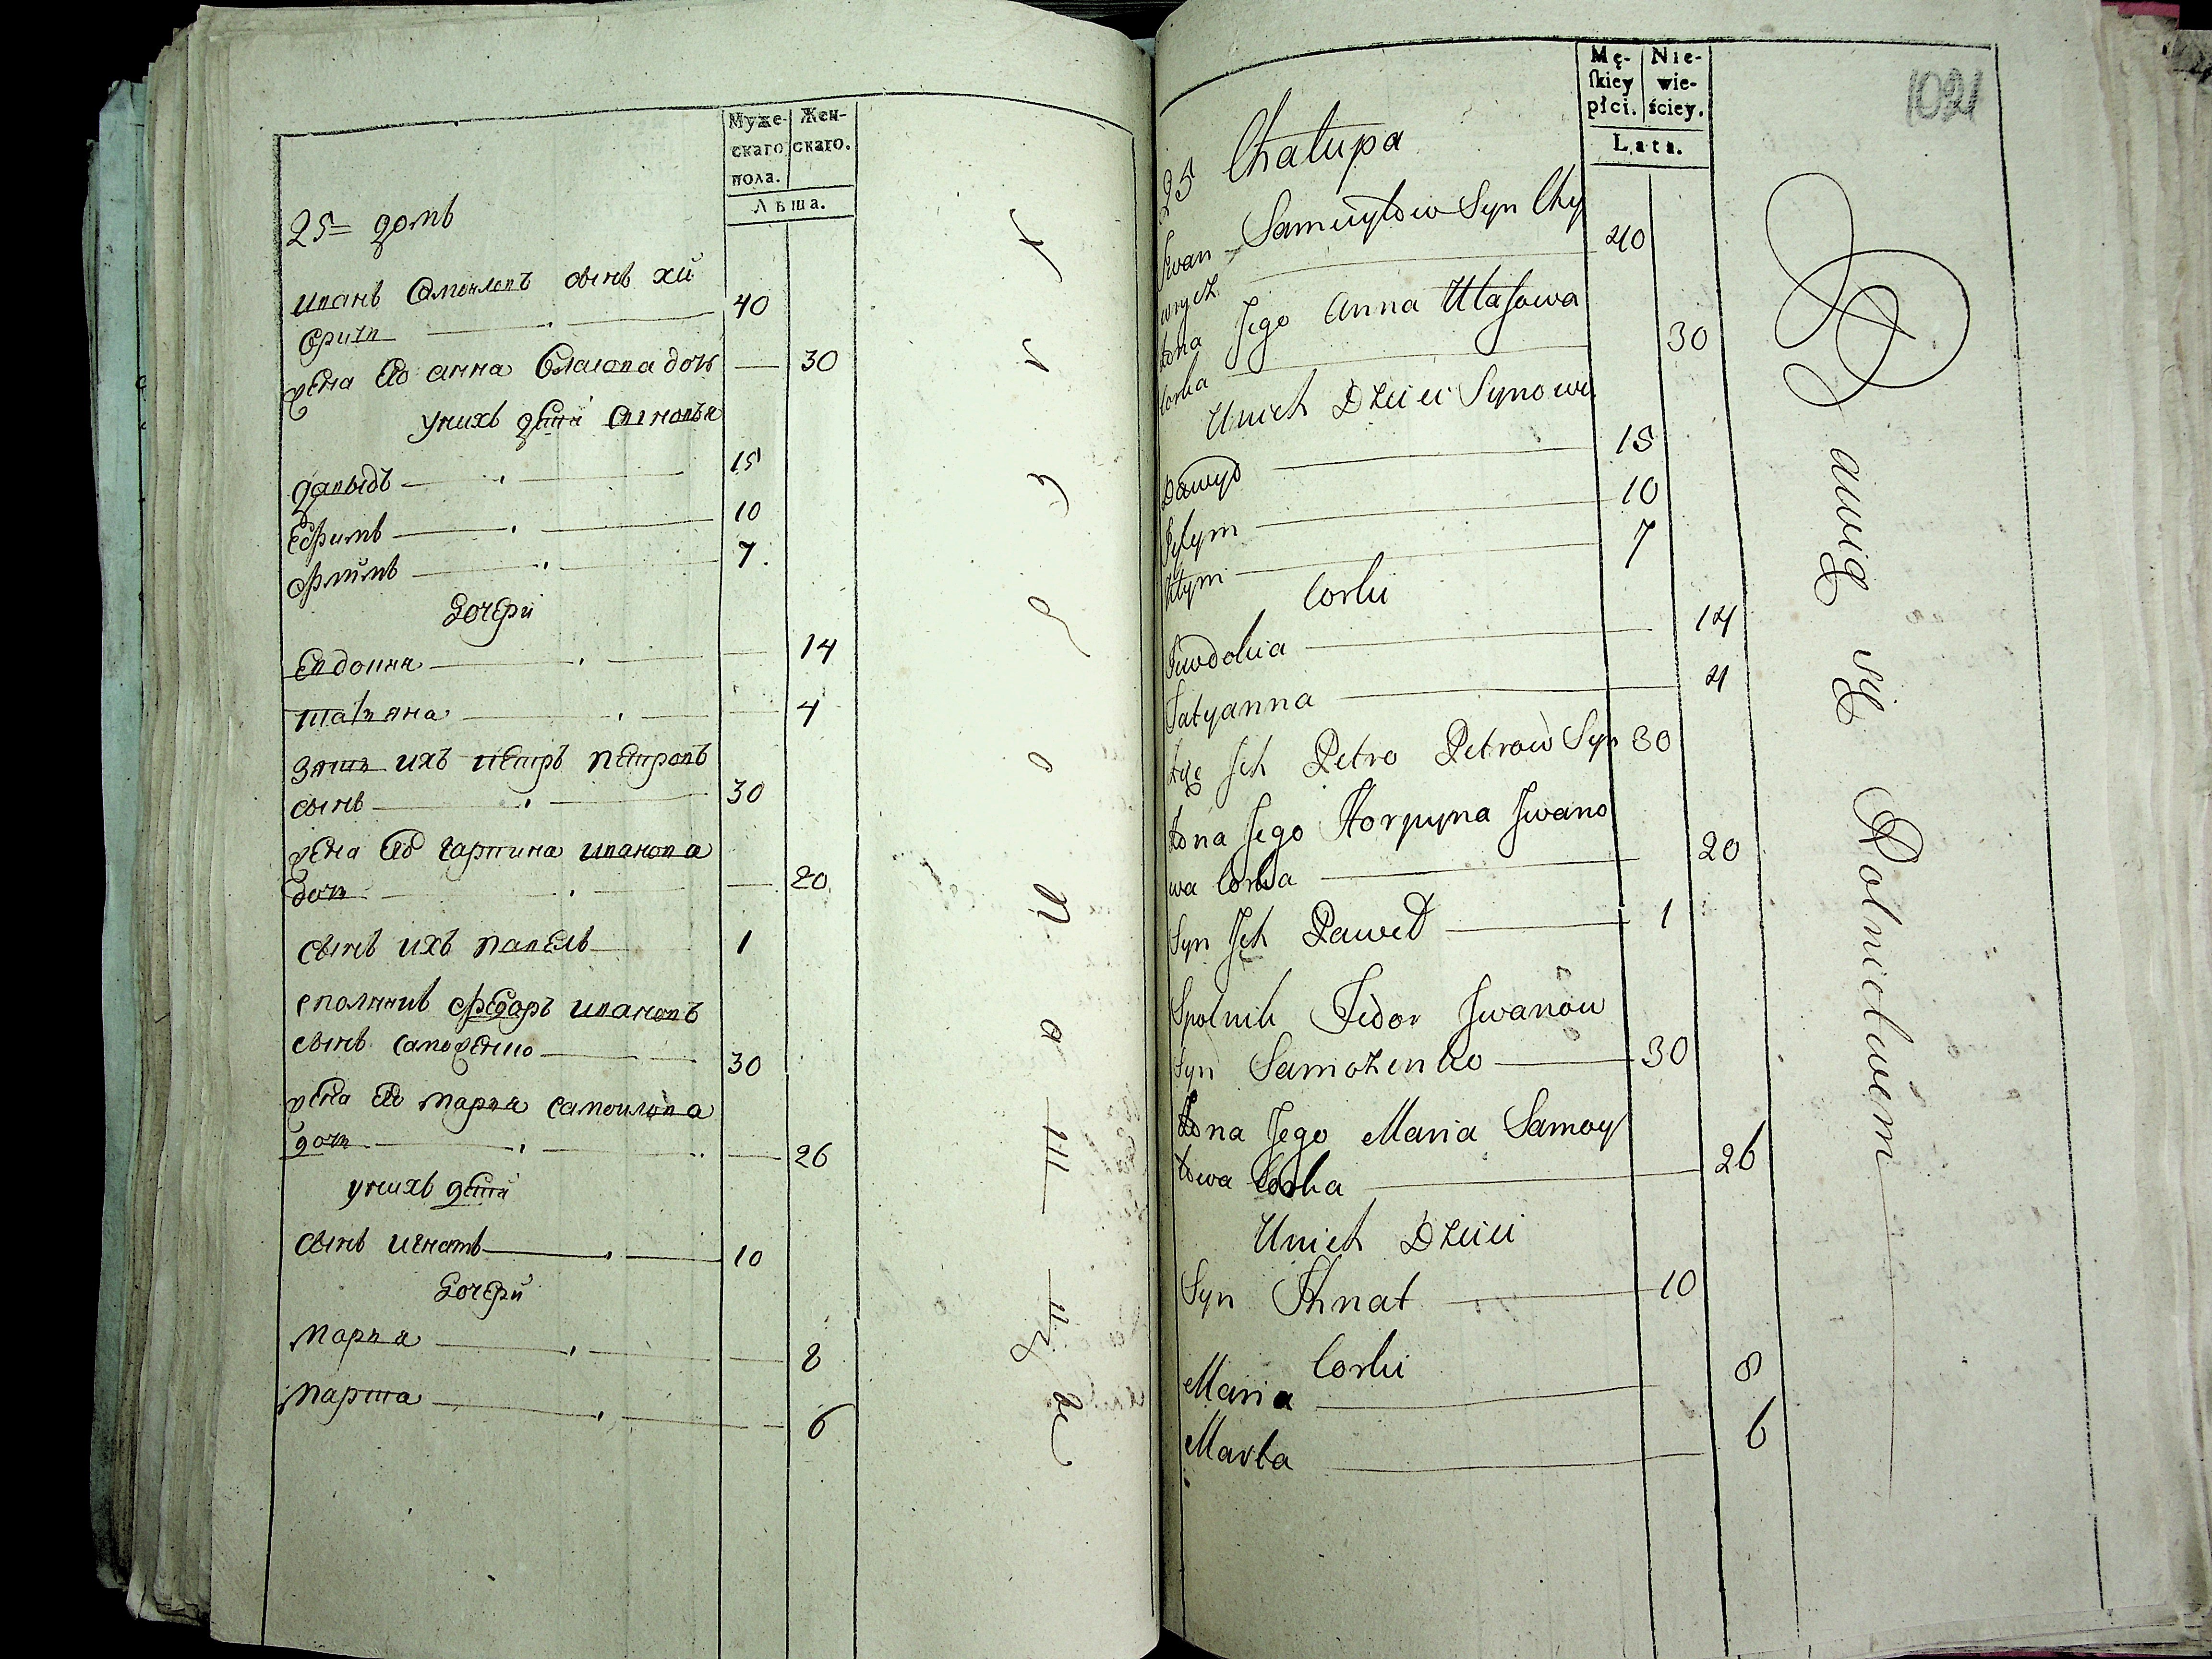 Муже-
скаго
пола.
Жен-
скаго.
Лѣта.
25= домъ
иванъ Самоиловъ сынъ хи
вричь 40
жена его анна власова дочь 30
унихъ дети сыновья
давыдъ 15
Ефимъ 10
Дочери
Евдокия 14
татьяна 4
зять ихъ петръ петровъ
сынъ 30
жена его гарпина иванова
дочь 20
сынъ ихъ павелъ 1
сполникъ федоръ ивановъ
сынъ саможенко 30
жена его марья самоилова
дочь 26
унихъ дети
сынъ игнатъ 10
Дочери
марья 8
марта 6
Mę-
ſkiey
płci.
Nie-
wie-
ściey.
Lata.
1021
25 Chałupa
Jwan Samuyłow Syn Chy
wrycz 40
żona Jego Anna Ułasowa
Corka 30
Unich Dzieci Synowie
Dawyd 15
Jefym 10
Kłym 7
Corki
Juwdokia 14
Tatyanna 4
Ich Petro Petrow Syn 30
żona Jego Horpyna Jwano
wa Corka 20
Syn Jch Paweł 1
Spolnik Fedor Jwanow
Syn Samozenko 30
Żona Jego Maria Samoy
łowa Corka 26
Unich Dzieci
Syn Ihnat 10
Corki
Maria 8
Marta 6
Bawią się Rolnictwem